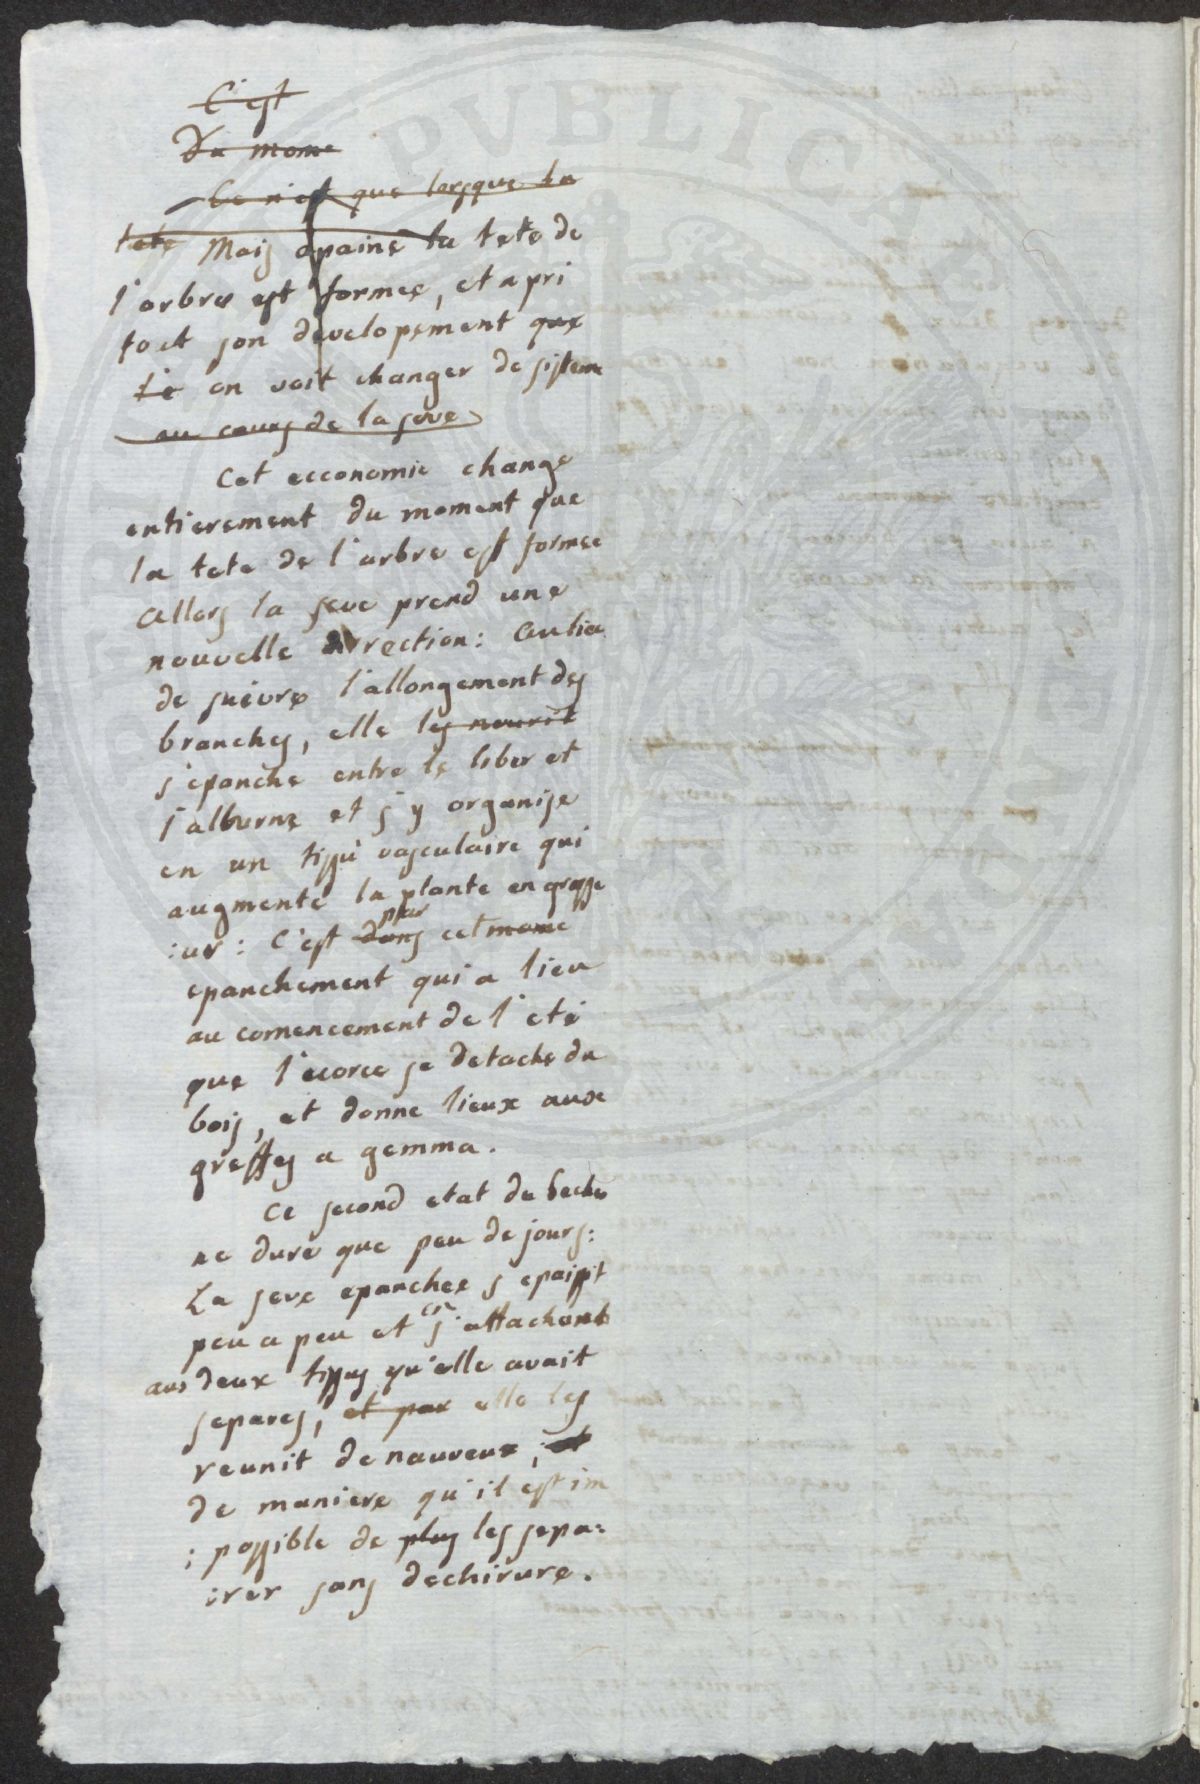 C'est
Du mome
Ce n'est que lorsque la
tete Mais apaine la tete de
l'arbre est formee, et a pri
tout son developement que
Le on voit changer de sisteme
au cours de la seve
Cet economie change
entierement du moment que
la tete de l'arbre est formee
allors la seve prend une
nouvelle direction: Au lieu
de suivre l'allongement des
branches, elle les nourit
s'epanche entre le liber et
l'alburne et s'y organise
en un tissu vasculaire qui
augmente la plante en grosse
:ur: C'est dans par cet meme
epanchement qui a lieu
au comencement de l'eté
que l'ecorce se detache du
bois, et donne lieux aux
greffes a gemma.
Ce second etat de
ne dure que peu de jours:
La seve epanchee s epaissit
peu a peu et en s'attachant
aus deux tissus qu'elle avait
separes, et par elle les
reunit de nauveux; et
de maniere qu'il est im
: possible de plus les sepa:
:rer sans dechirure.
PVBLICA